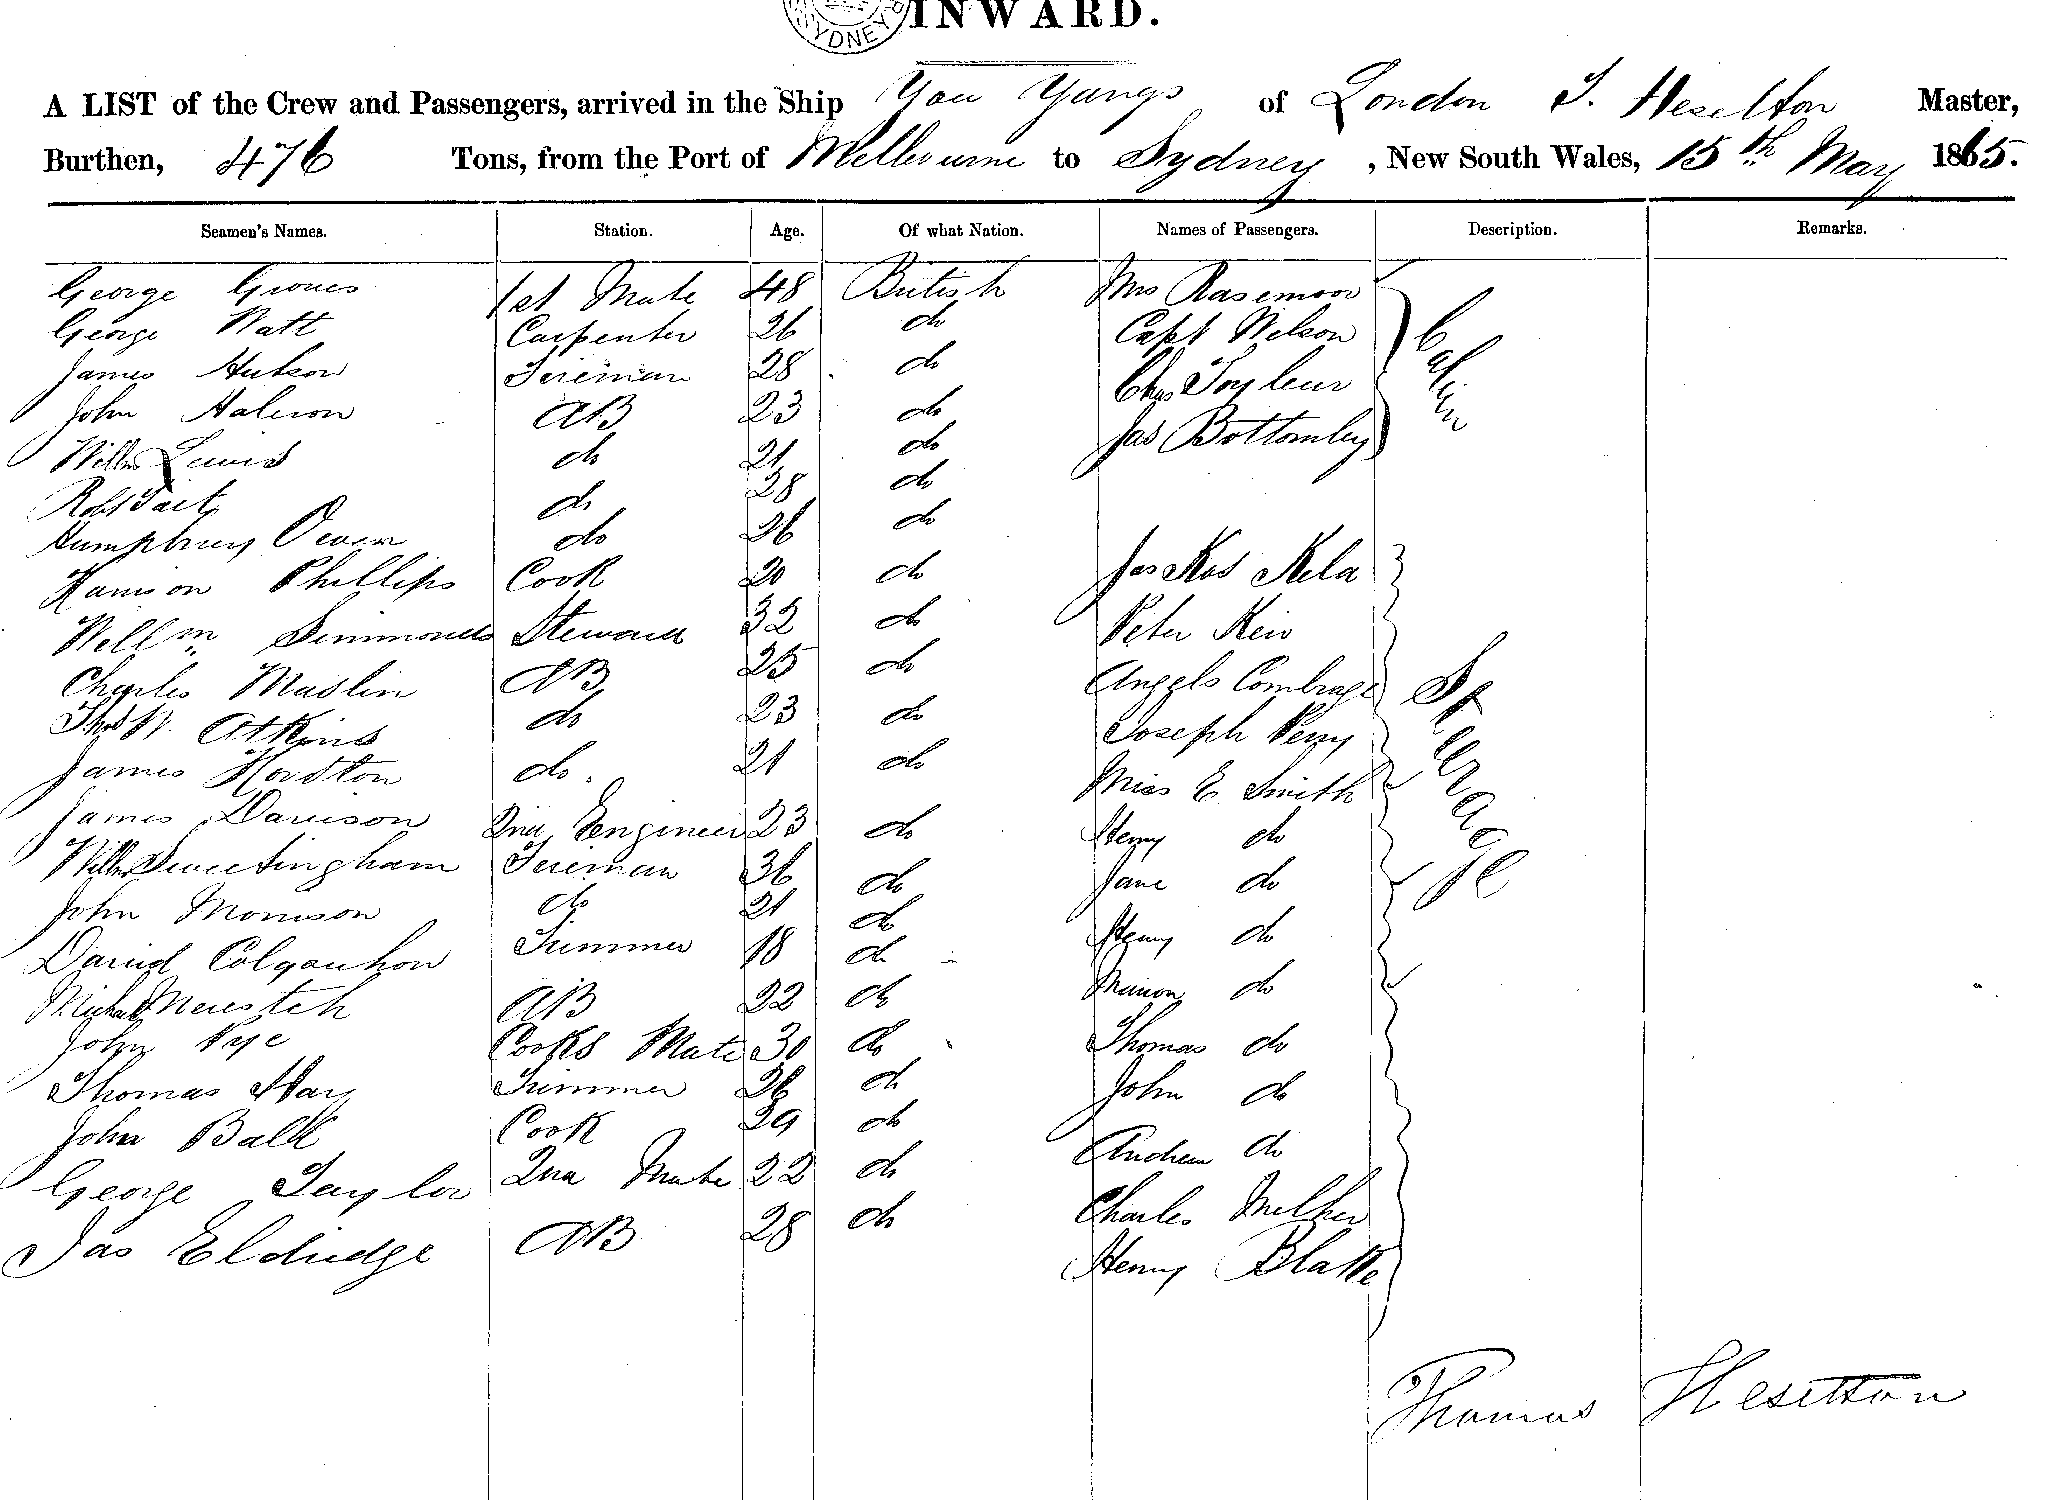 SYDNEY
INWARD.
A LIST of the Crew and Passengers, arrived in the Ship You Yangs of London T. Heselton Master,
Burthen, 476 Tons, from the Port of Melbourne to Sydney, New South Wales, 15th May 1865.
Seamen's Names. Station. Age. Of what Nation. Names of Passengers. Description. Remarks.
George Groves 1st Mate 48 British Mrs Rasemoor
George Watt Carpenter 26 do Capt Wilson Cabin
James Hutson Fireman 28 do Chas
John AB 23 do Jas Bottomley
Willm Lewis do 21 do
Robt Tait do 28 do
Humphrey Owen do 26 do
Harrison Phillips Cook 20 do Jas
Willm Simmonds Steward 32 do Peter
Charles Maslin AB 25 do Angels Steerage
Thos W. Atkins do 23 do Joseph Perry
James do. 21 do Miss E Smith
James Davison 2nd Engineer 23 do Henry do
Willm Sweetingham Fireman 36 do Jane do
John Morrison do 21 do Henry do
David Colqouhon Trimmer 18 do Marion do
Michael AB 22 do Thomas do
John Pye Cooks Mate 30 do John do
Thomas Hay Trimmer 26 do
John Balk Cook 39 do Andrew do
George Taylor 2nd Mate 22 do Charles
Jas Eldridge AB 28 do Henry Blake
Thomas Heselton